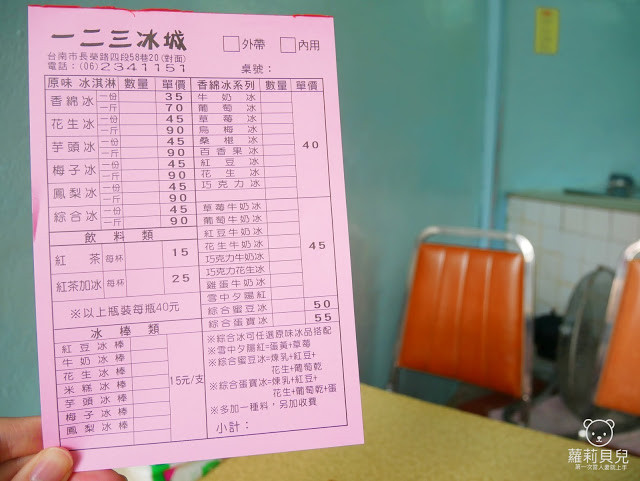 一二三冰城
外帶 內用
台南市長榮路四段58巷20(對面)
電話：(06)2341151
桌號：
原味 冰淇淋 數量 單價
香綿冰 一份 35
一斤 70
花生冰 一份 45
一斤 90
芋頭冰 一份 45
一斤 90
梅子冰 一份 45
一斤 90
鳳梨冰 一份 45
一斤 90
綜合冰 一份 45
一斤 90
飲料類
紅茶 每杯 15
紅茶加冰 每杯 25
※以上瓶裝每瓶40元
冰棒類
紅豆冰棒
牛奶冰棒
花生冰棒
米糕冰棒
芋頭冰棒
梅子冰棒
鳳梨冰棒
15元/支
香綿冰系列 數量 單價
牛奶冰
葡萄冰
草莓冰
烏梅冰
桑椹冰
百香果冰
紅豆冰
花生冰
巧克力冰
40
草莓牛奶冰
葡萄牛奶冰
紅豆牛奶冰
花生牛奶冰
巧克力牛奶冰
巧克力花生冰
雞蛋牛奶冰
雪中夕陽紅
45
綜合蜜豆冰 50
綜合蛋寶冰 55
※綜合冰可任選原味冰品搭配
※雪中夕陽紅=蛋黃+草莓
※綜合蜜豆冰=煉乳+紅豆+
花生+葡萄乾
※綜合蛋寶冰=煉乳+紅豆+
花生+葡萄乾+蛋
※多加一種料，另加收費
小計：
蘿莉貝兒
第一次當人妻就上手